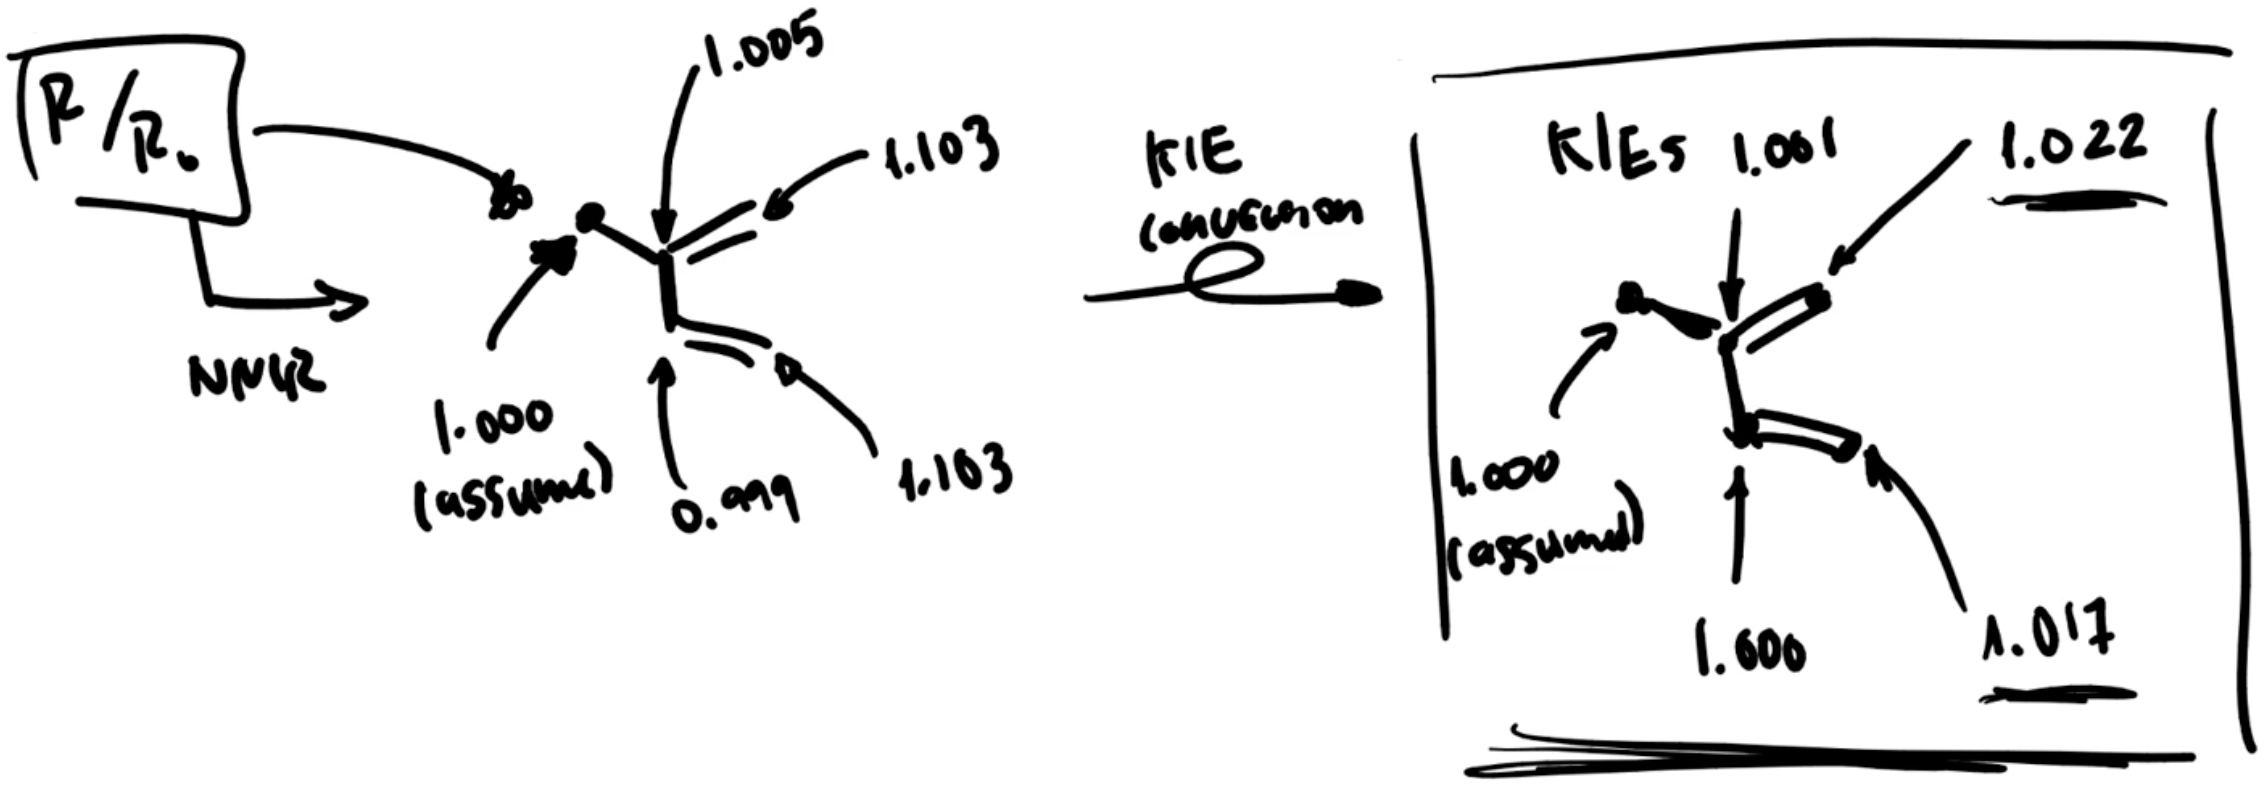 R/R₀
NMR
1.005
1.103
1.000
(assume)
0.999
1.103
KIE
conversion
KIEs
1.001
1.022
1.000
(assumed)
1.000
1.017